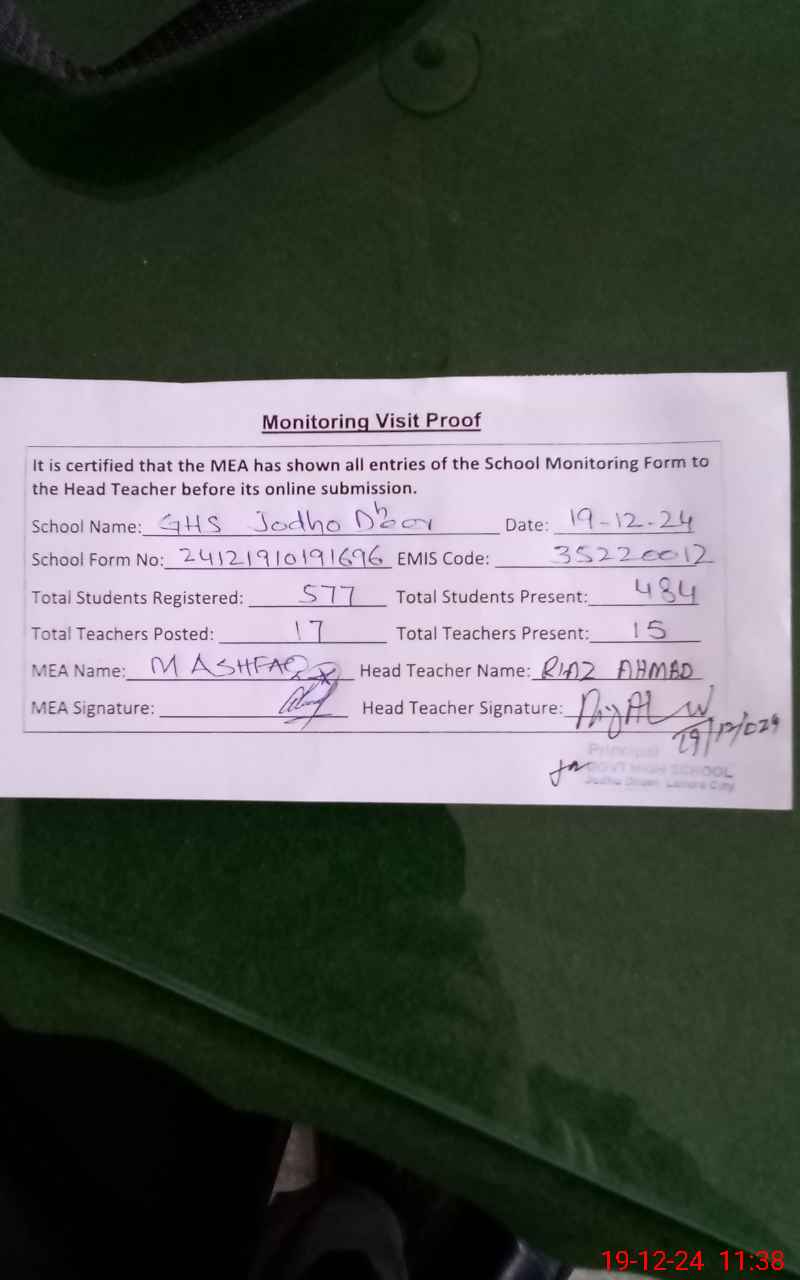 Monitoring Visit Proof
It is certified that the MEA has shown all entries of the School Monitoring Form to
the Head Teacher before its online submission.
School Name: GHS Jodho Dheer Date: 19-12-24
School Form No: 24121910191696 EMIS Code: 35220012
Total Students Registered: 577 Total Students Present: 484
Total Teachers Posted: 17 Total Teachers Present: 15
MEA Name: M ASHFAQ Head Teacher Name: RIAZ AHMAD
MEA Signature: Head Teacher Signature:
Principal
GOVT HIGH SCHOOL
Jodhu Dheer, Lahore City
19-12-24 11:38